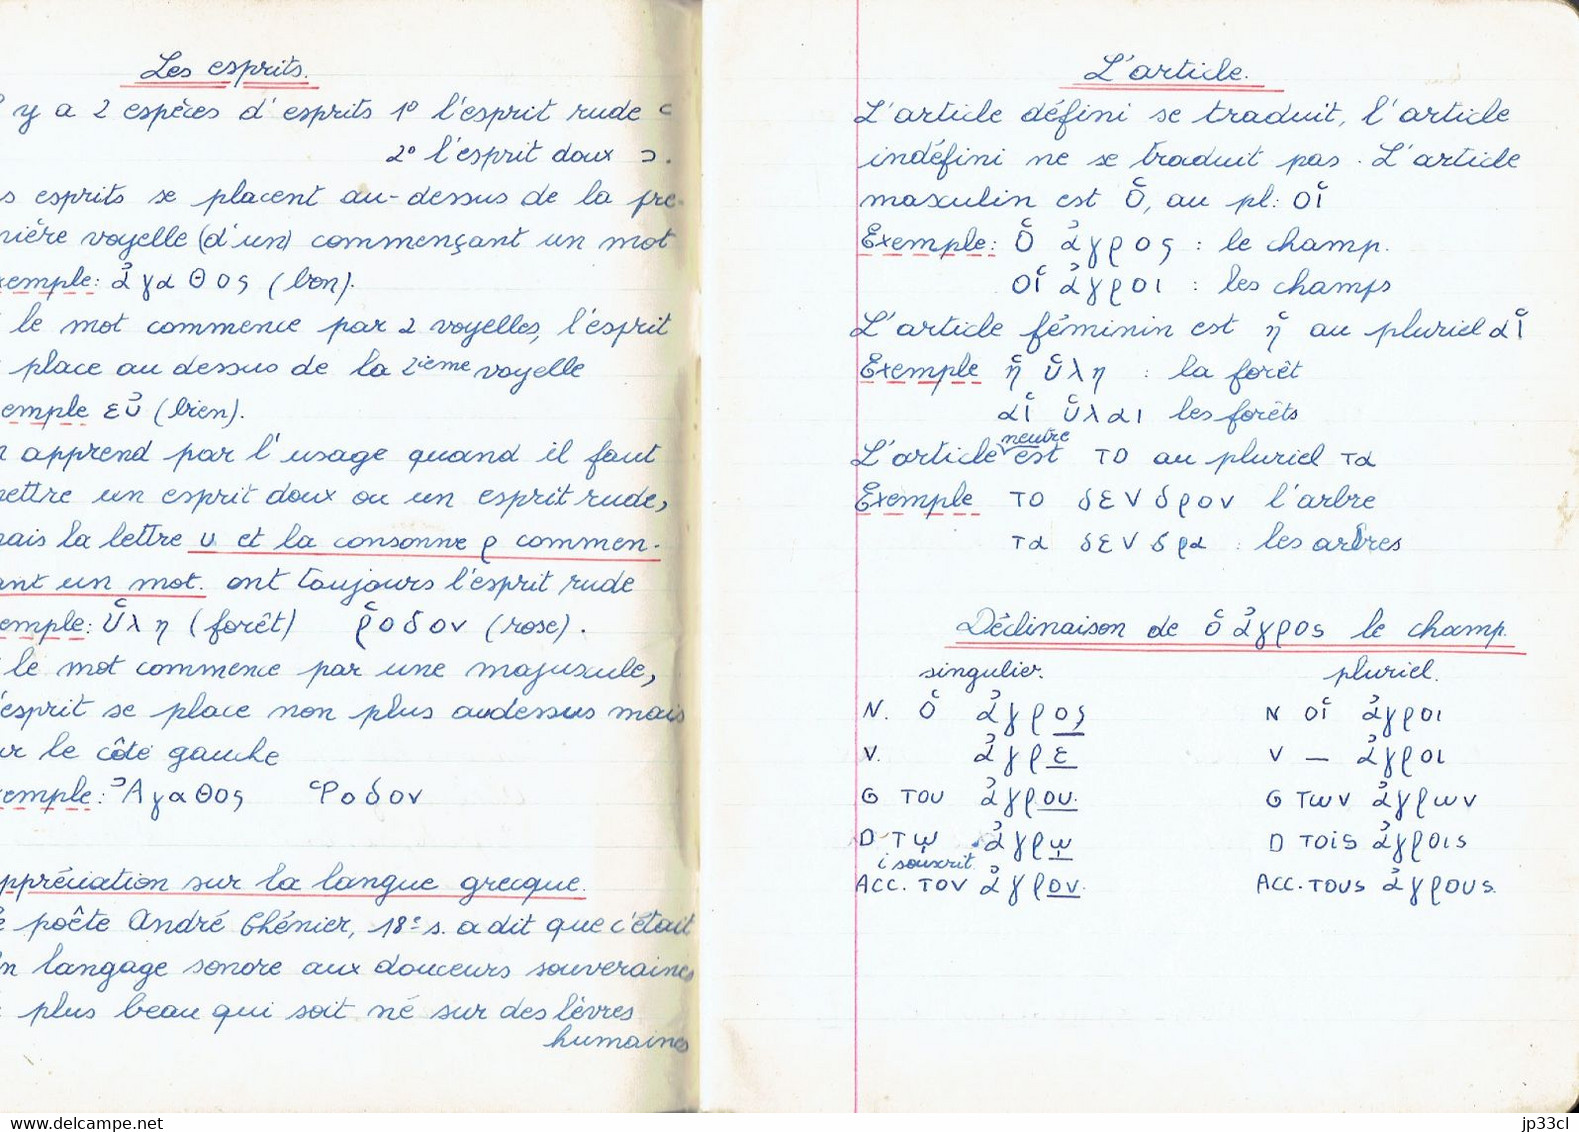 Les esprits.
y a 2 espèces d'esprits 1° l'esprit rude ⊂
2° l'esprit doux ⊃.
s esprits se placent au-dessus de la pre-
mière voyelle (d'un) commençant un mot
exemple: ἀγαθος (bon).
le mot commence par 2 voyelles, l'esprit
place au dessus de la 2ième voyelle
emple εὐ (bien).
n apprend par l'usage quand il faut
mettre un esprit doux ou un esprit rude,
mais la lettre υ et la consonne ρ commen-
ant un mot. ont toujours l'esprit rude
emple: ὑλη (forêt) ῥοδον (rose).
le mot commence par une majuscule,
'esprit se place non plus audessus mais
ur le côté gauche
emple: Ἀγαθος Ῥοδον
ppréciation sur la langue grecque.
e poête André Chénier, 18e s. a dit que c'était
n langage sonore aux douceurs souveraines
plus beau qui soit né sur des lèvres
humaines
L'article.
L'article défini se traduit, l'article
indéfini ne se traduit pas. L'article
masculin est ὁ, au pl: οἱ
Exemple: ὁ ἀγρος : le champ.
οἱ ἀγροι : les champs
L'article féminin est ἡ au pluriel αἱ
Exemple ἡ ὑλη : la forêt
αἱ ὑλαι les forêts
L'article neutre est το au pluriel τα
Exemple το δενδρον l'arbre
τα δενδρα : les arbres
Déclinaison de ὁ ἀγρος le champ.
singulier. pluriel.
N. ὁ ἀγρος N οἱ ἀγροι
V. ἀγρε V — ἀγροι
G του ἀγρου. G των ἀγρων
D τῳ ἀγρῳ D τοις ἀγροις
i souscrit.
ACC. τον ἀγρον. ACC. τους ἀγρους.
www.delcampe.net
jp33cl